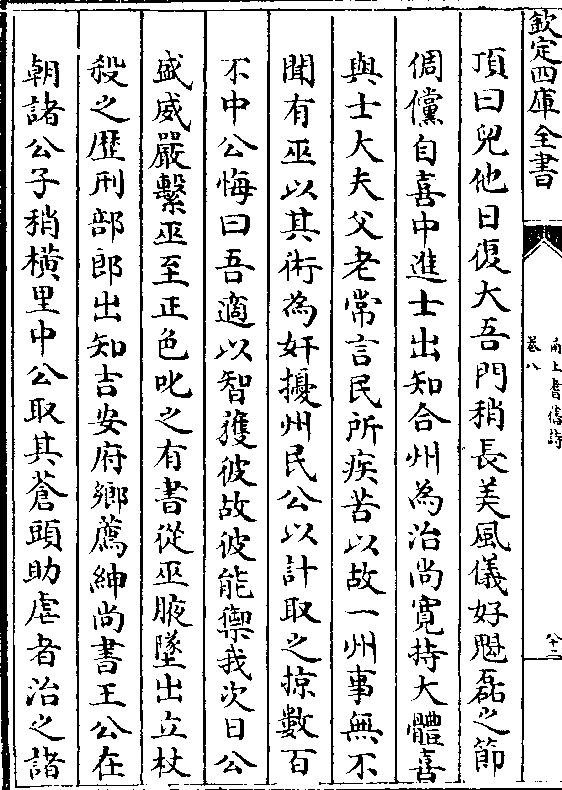 欽定四庫全書
甬上耆舊詩
卷八
八十二
頂曰兒他日復大吾門稍長美風儀好魁磊之節
倜儻自喜中進士出知合州為治尚寛持大體喜
與士大夫父老常言民所疾苦以故一州事無不
聞有巫以其術為奸擾州民公以計取之掠數百
不中公悔曰吾適以智獲彼故彼能禦我次日公
盛威嚴繫巫至正色叱之有書從巫腋墜出立杖
殺之歴刑部郎出知吉安府鄉薦紳尚書王公在
朝諸公子稍橫里中公取其蒼頭助虐者治之諸